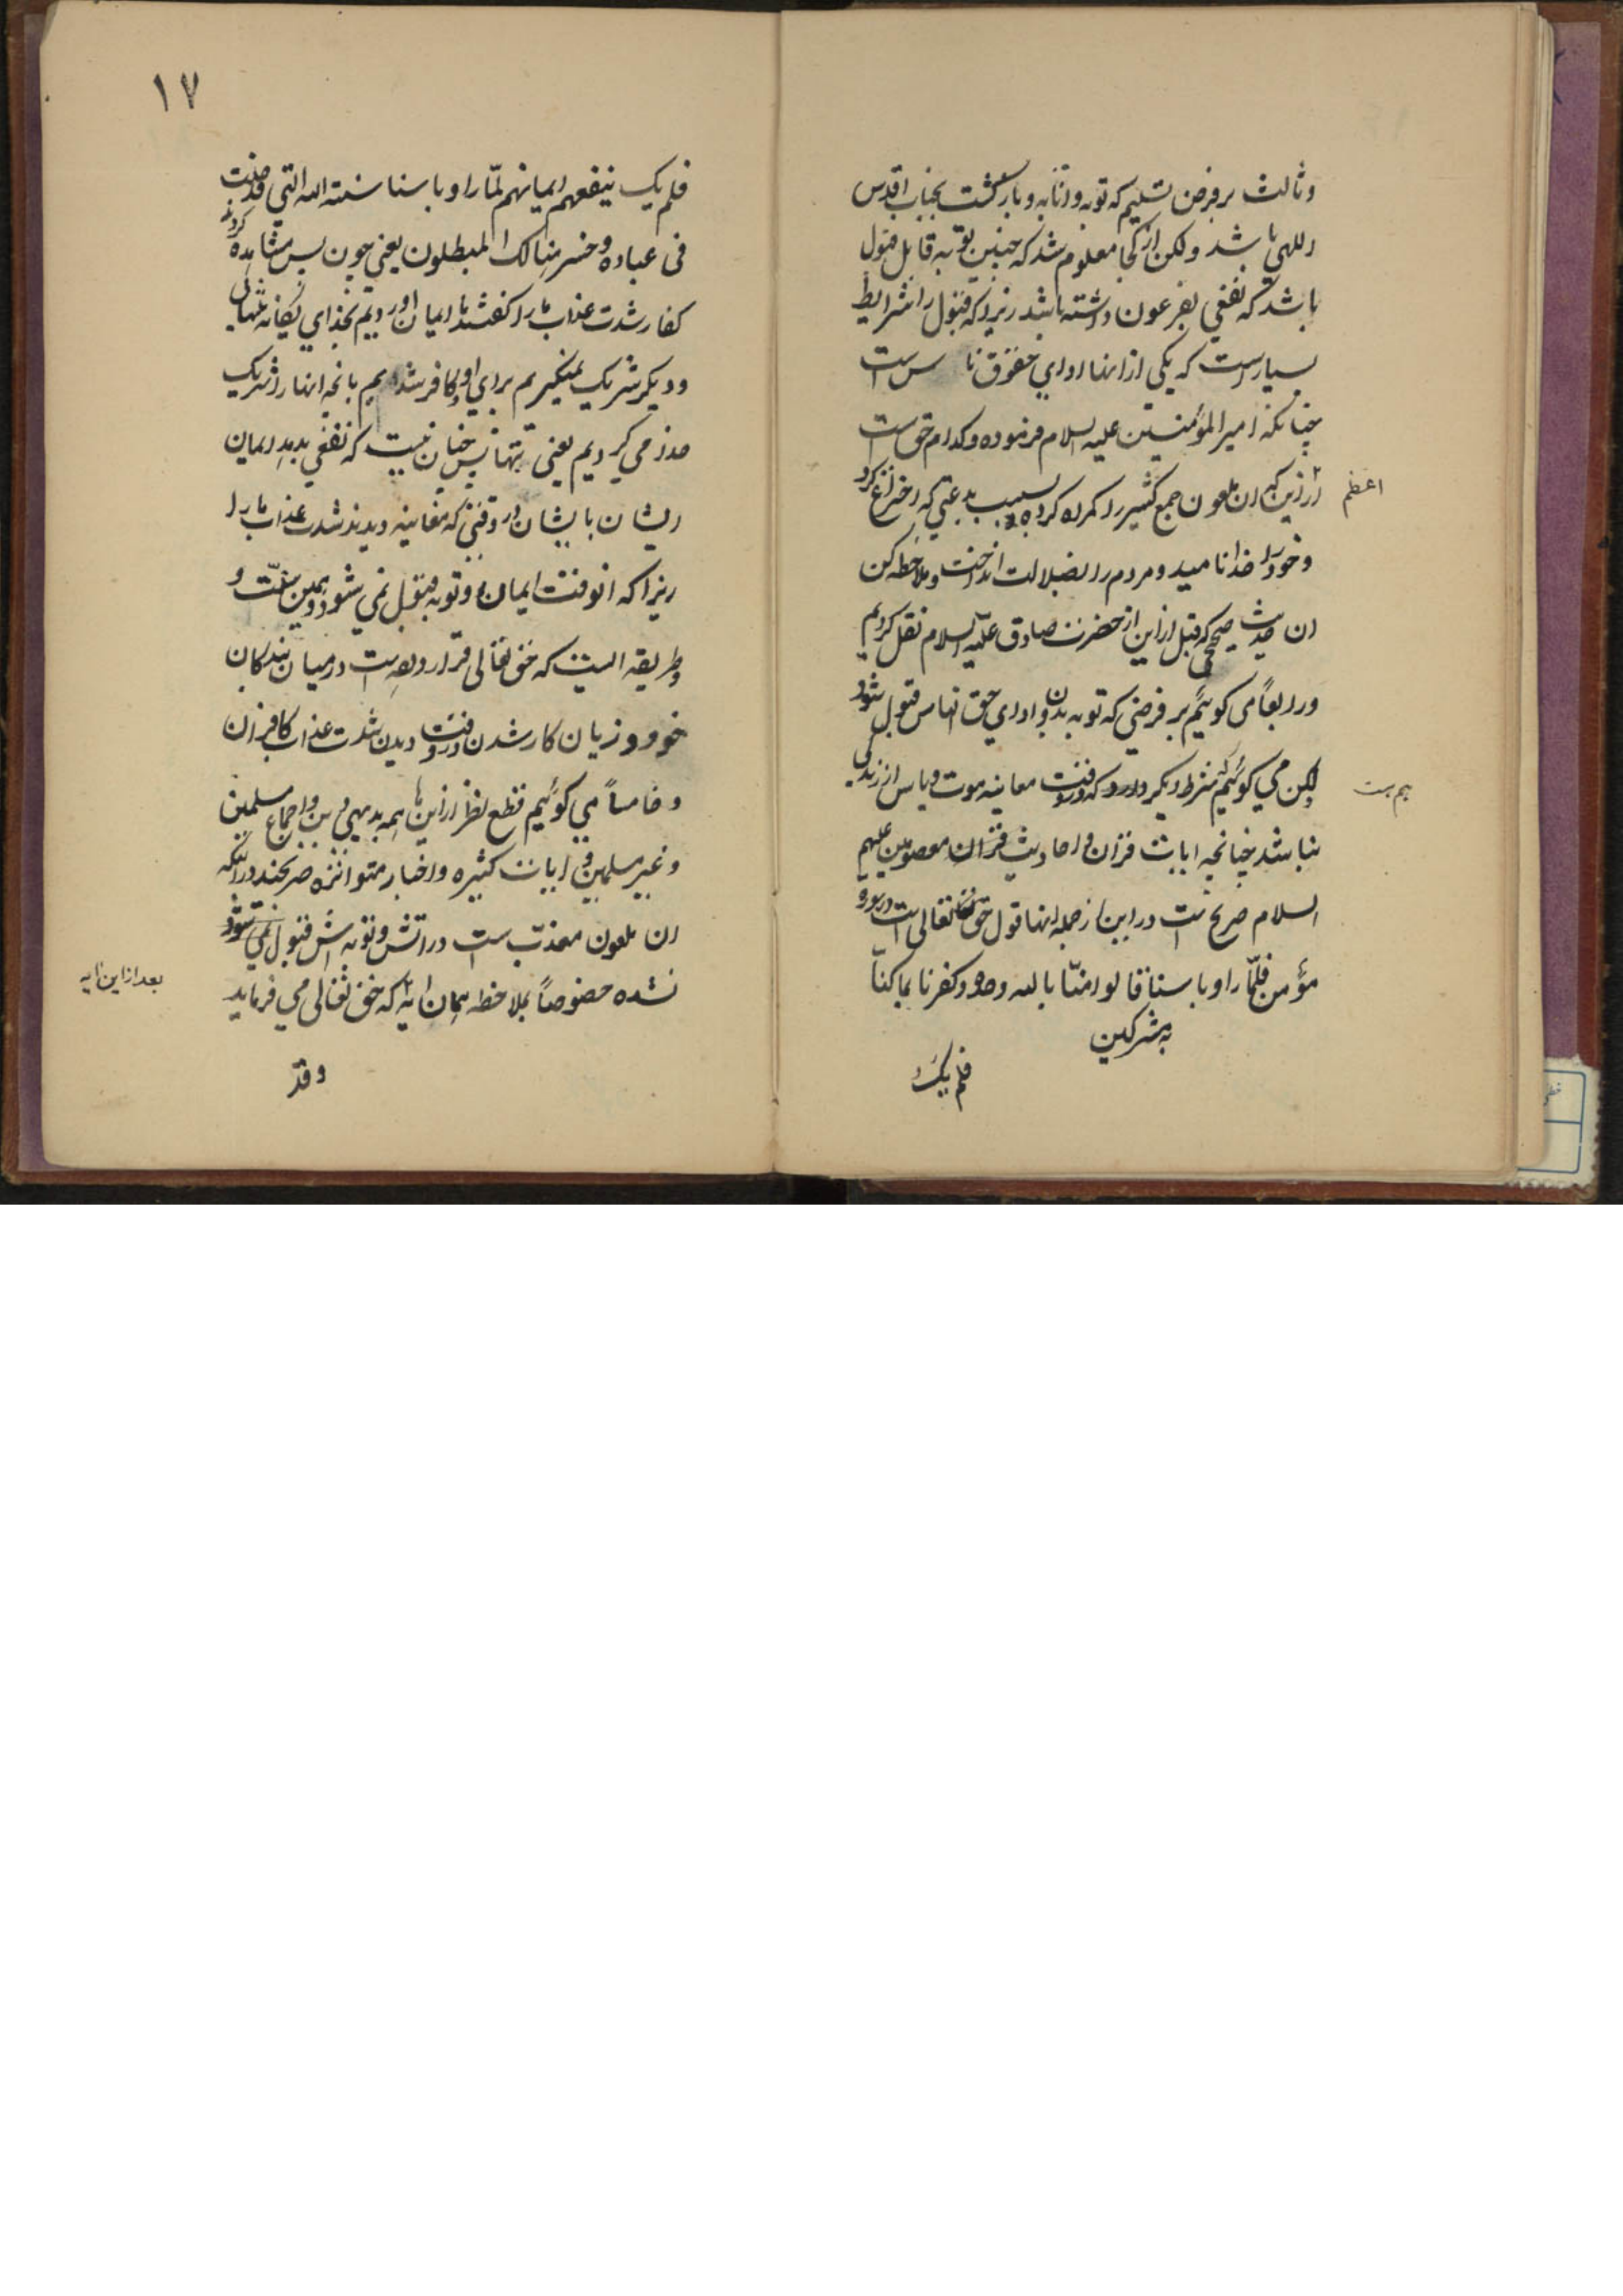 وثالث بر فرض تسلیم که توبه و انابه و بازگشت بجناب اقدس
اللهی باشد ولکن از کجا معلوم شد که چنین توبه قابل قبول
باشد که نفعی بفرعون داشته باشد زیرا که قبول را شرایط
بسیار است که یکی از انها ادای حقوق ناس است
چنانکه امیر المؤمنین علیه السلام فرموده و کدام حق است
اعظم
از این که ان ملعون جمع کثیر را کمراه کرده بسبب بدعتی که اختراع کرد
و خود را خدا نامید و مردم را بضلالت انداخت و ملاحظه کن
ان حدیث صحیحی که قبل از این از حضرت صادق علیه السلام نقل کردیم
و رابعاً می کوییم بر فرضی که توبه بدون ادای حق الناس قبول شود
لکن می کوئیم شرط دیکر دارد که در وقت معاینه موت و یاس از زندکی
هم هست
نباشد چنانچه ایات قران و احادیث قران معصومین علیهم
السلام صریح است در این از جمله انها قول حق تعالی است در سوره
مؤمن فلمّا راوا باسنا قالوا امنّا بالله وحده و کفرنا بما کنّا
به مشرکین
فلم یک
١٧
فلم یک ینفعهم ایمانهم لمّا راوا باسنا سنته الله التی قد خلت
فی عباده و خسر هنالک المبطلون یعنی چون پس مشاهده کردند
کفار شدت عذاب ما را کفتند ما ایمان اوردیم بخدای یکانه بتنهایی
و دیکر شریک نمیکیریم برای او و کافر شدیم بانچه انها را شریک
خدا می کردیم یعنی بتها پس چنان نیست که نفعی بدهد ایمان
ایشان بایشان در وقتی که معاینه دیدند شدت عذاب ما را
زیرا که انوقت ایمان و توبه قبول نمی شود و همین سنّت و
و طریقه ایست که حق تعالی قرار داده است در میان بندکان
خود و زیان کار شدن در وقت دیدن شدت عذاب کافران
و خامساً می کوئیم قطع نظر از اینها همه بدیهی دین و اجماع مسلمین
و غیر مسلمین و ایات کثیره و اخبار متواتره صریحند در اینکه
ان ملعون معذّب است در اتش و توبه اش قبول نمی شود
نشده خصوصاً بملاحظه همان ایه که حق تعالی می فرماید
بعد از این ایه
و قد